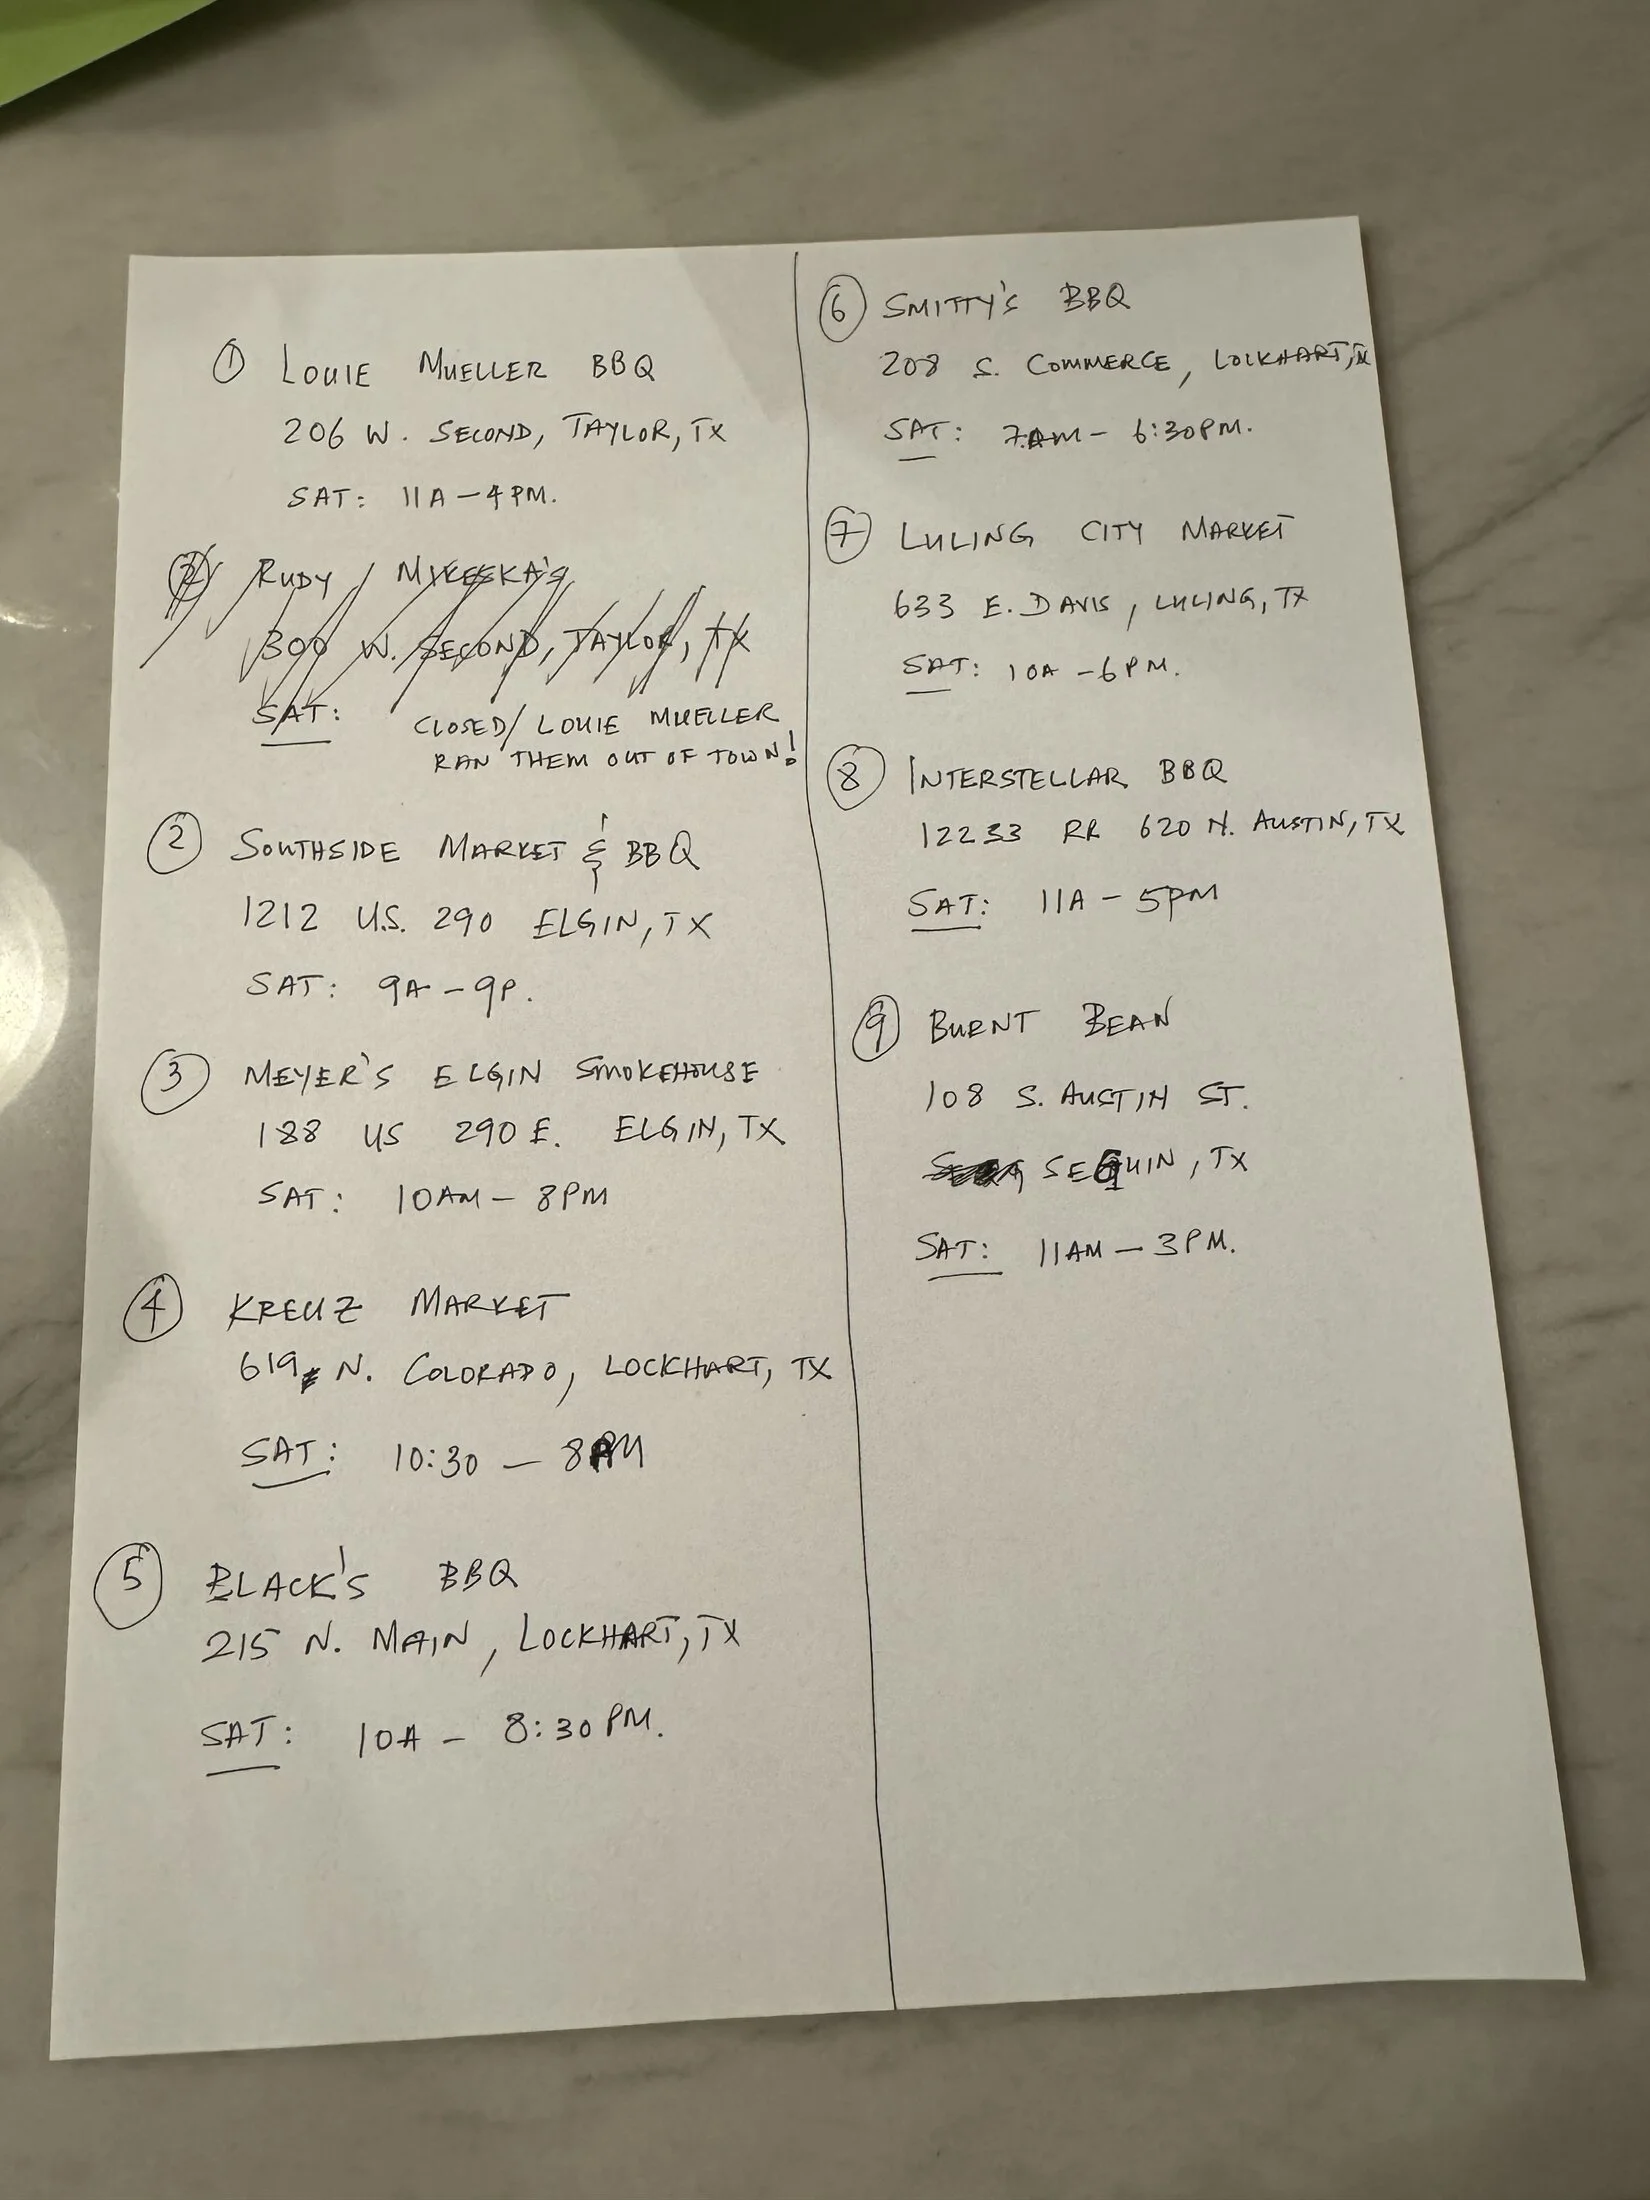 ① LOUIE MUELLER BBQ
206 W. SECOND, TAYLOR, TX
SAT: 11A - 4PM.
② RUDY MIKESKA'S
300 W. SECOND, TAYLOR, TX
SAT: CLOSED/ LOUIE MUELLER
RAN THEM OUT OF TOWN!
② SOUTHSIDE MARKET & BBQ
1212 U.S. 290 ELGIN, TX
SAT: 9A - 9P.
③ MEYER'S ELGIN SMOKEHOUSE
188 US 290 E. ELGIN, TX
SAT: 10AM - 8PM
④ KREUZ MARKET
619 N. COLORADO, LOCKHART, TX
SAT: 10:30 - 8PM
⑤ BLACK'S BBQ
215 N. MAIN, LOCKHART, TX
SAT: 10A - 8:30PM.
⑥ SMITTY'S BBQ
208 S. COMMERCE, LOCKHART, TX
SAT: 7AM - 6:30PM.
⑦ LULING CITY MARKET
633 E. DAVIS, LULING, TX
SAT: 10A - 6PM.
⑧ INTERSTELLAR BBQ
12233 RR 620 N. AUSTIN, TX
SAT: 11A - 5PM
⑨ BURNT BEAN
108 S. AUSTIN ST.
SEGUIN, TX
SAT: 11AM - 3PM.